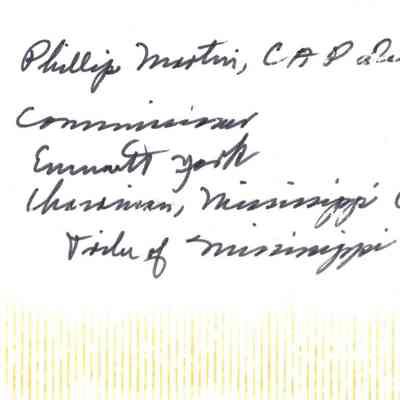 Phillip Martin, CAP
Commissioner
Emmett York
Chairman, Mississippi
Tribe of Mississippi